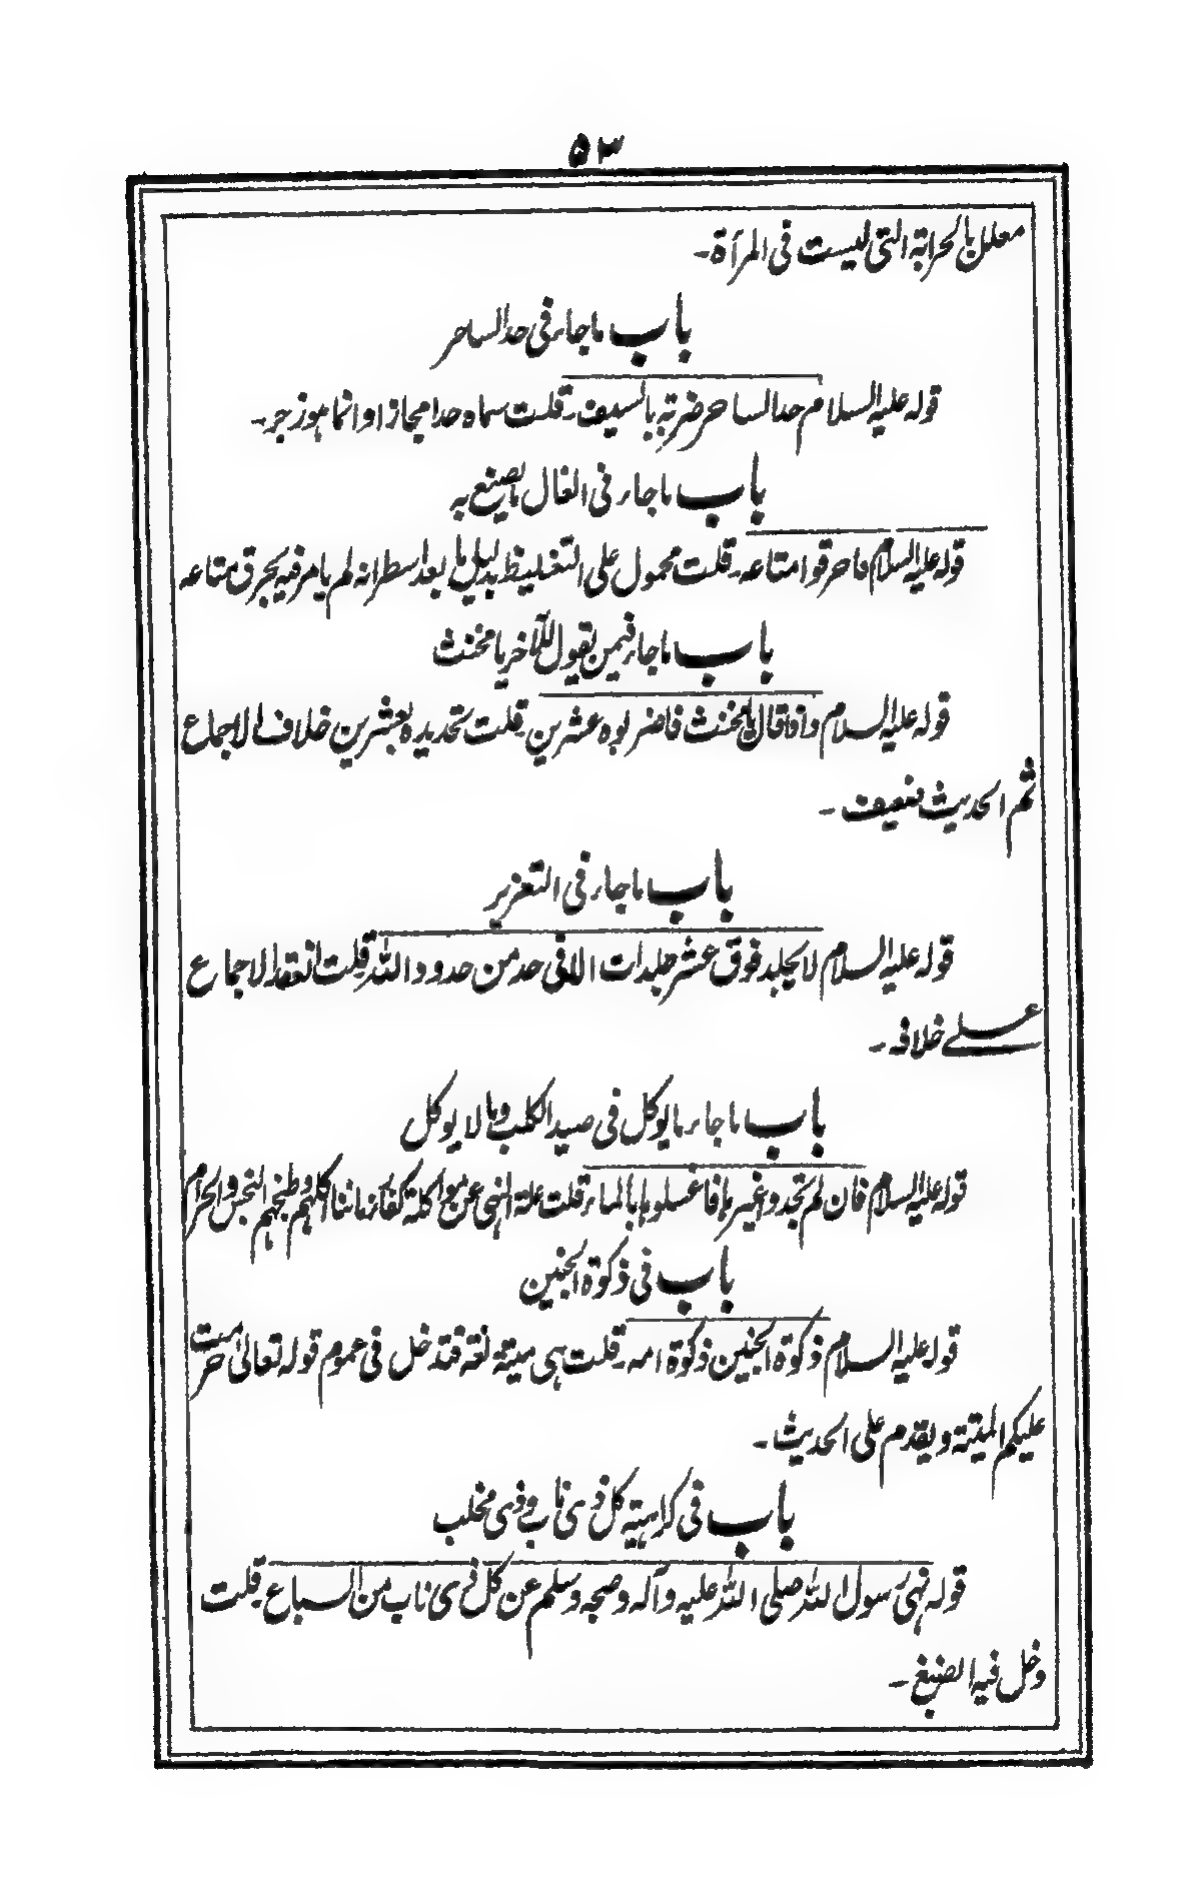 ۵۳
معلل بالحرابة التی لیست فی المرأة۔
باب ماجاء فی حد الساحر
قوله علیه السلام حد الساحر ضربة بالسیف۔ قلت سماه حدا مجازا وانما هو زجر۔
باب ماجاء فی الغال ما یصنع به
قوله علیه السلام فاحرقوا متاعه۔ قلت محمول علی التغلیظ بدلیل ما بعد اسطر انه لم یامر فیه بحرق متاعه
باب ماجاء فیمن یقول للآخر یا مخنث
قوله علیه السلام واذا قال یا مخنث فاضربوه عشرین۔ قلت تحدیده بعشرین خلاف الاجماع
ثم الحدیث ضعیف۔
باب ماجاء فی التعزیر
قوله علیه السلام لا یجلد فوق عشر جلدات الا فی حد من حدود الله قلت انعقد الاجماع
علے خلافه۔
باب ماجاء ما یوکل فی صید الکلب وما لا یوکل
قوله علیه السلام فان لم تجدوا غیرها فاغسلوها بالماء۔ قلت علة النهی عن مواکلة کفار زماننا اکلهم وطبخهم النجس والحرام
باب فی ذکوة الجنین
قوله علیه السلام ذکوة الجنین ذکوة امه۔ قلت هی میتة لغة فتدخل فی عموم قوله تعالیٰ حرمت
علیکم المیتة ویقدم علی الحدیث۔
باب فی کراهیة کل ذی ناب وذی مخلب
قوله نهی رسول الله صلی الله علیه وآله وصحبه وسلم عن کل ذی ناب من السباع قلت
دخل فیه الضبع۔